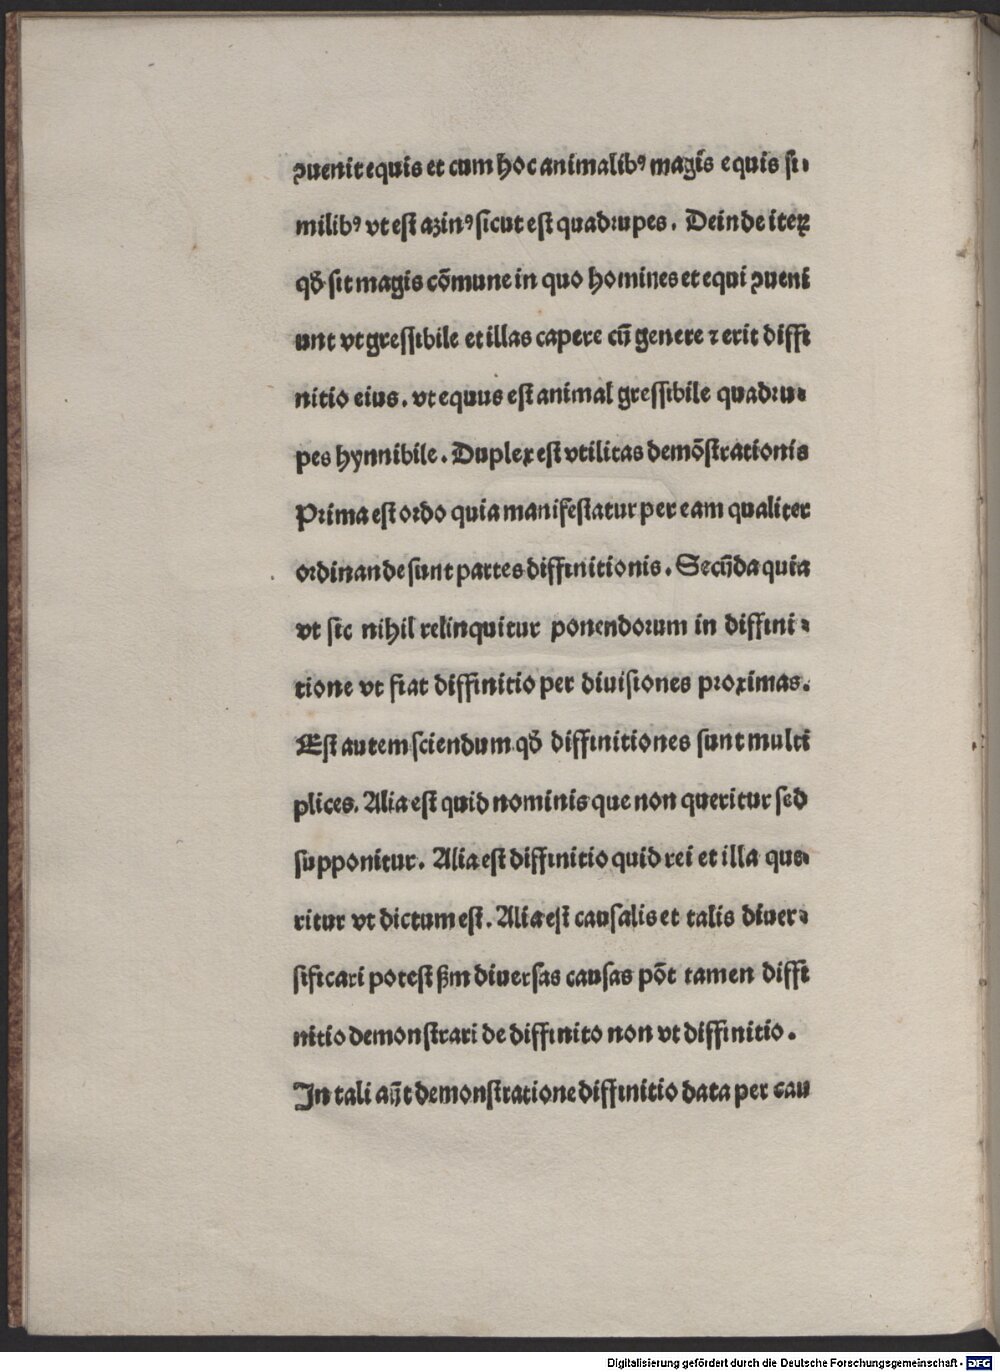 ꝯuenit equis et cum hoc animalibꝰ magis equis si⸗
milibꝰ vt est azinꝰ sicut est quadrupes. Deinde iteꝝ
qđ sit magis cōmune in quo homines et equi ꝯueni
unt vt gressibile et illas capere cū genere ⁊ erit diffi
nitio eius. vt equus est animal gressibile quadru⸗
pes hynnibile. Duplex est vtilitas demōstrationis
Prima est ordo quia manifestatur per eam qualiter
ordinande sunt partes diffinitionis. Secūda quia
vt sic nihil relinquitur ponendorum in diffini⸗
tione vt fiat diffinitio per diuisiones proximas.
Est autem sciendum qđ diffinitiones sunt multi
plices. Alia est quid nominis que non queritur sed
supponitur. Alia est diffinitio quid rei et illa que⸗
ritur vt dictum est. Alia est causalis et talis diuer⸗
sificari potest ẜm diuersas causas pōt tamen diffi
nitio demonstrari de diffinito non vt diffinitio.
In tali aūt demonstratione diffinitio data per cau
Digitalisierung gefördert durch die Deutsche Forschungsgemeinschaft - DFG